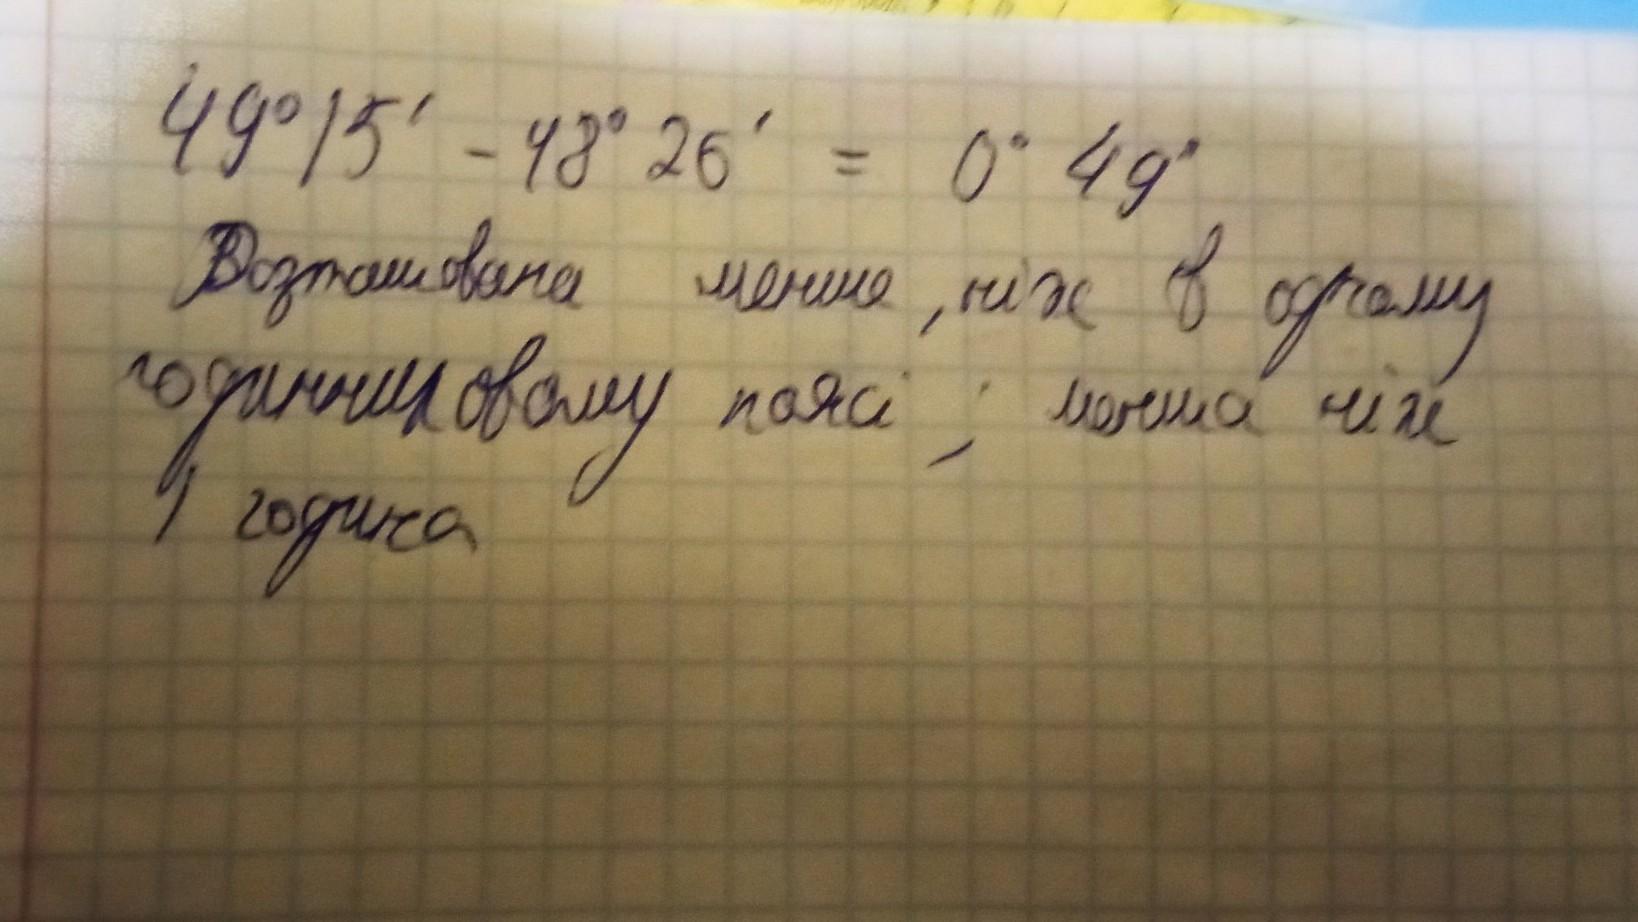 49°15′ - 48°26′ = 0° 49°
Возташована менше, ніж в одному
годинниковому поясі; менша ніж
1 година